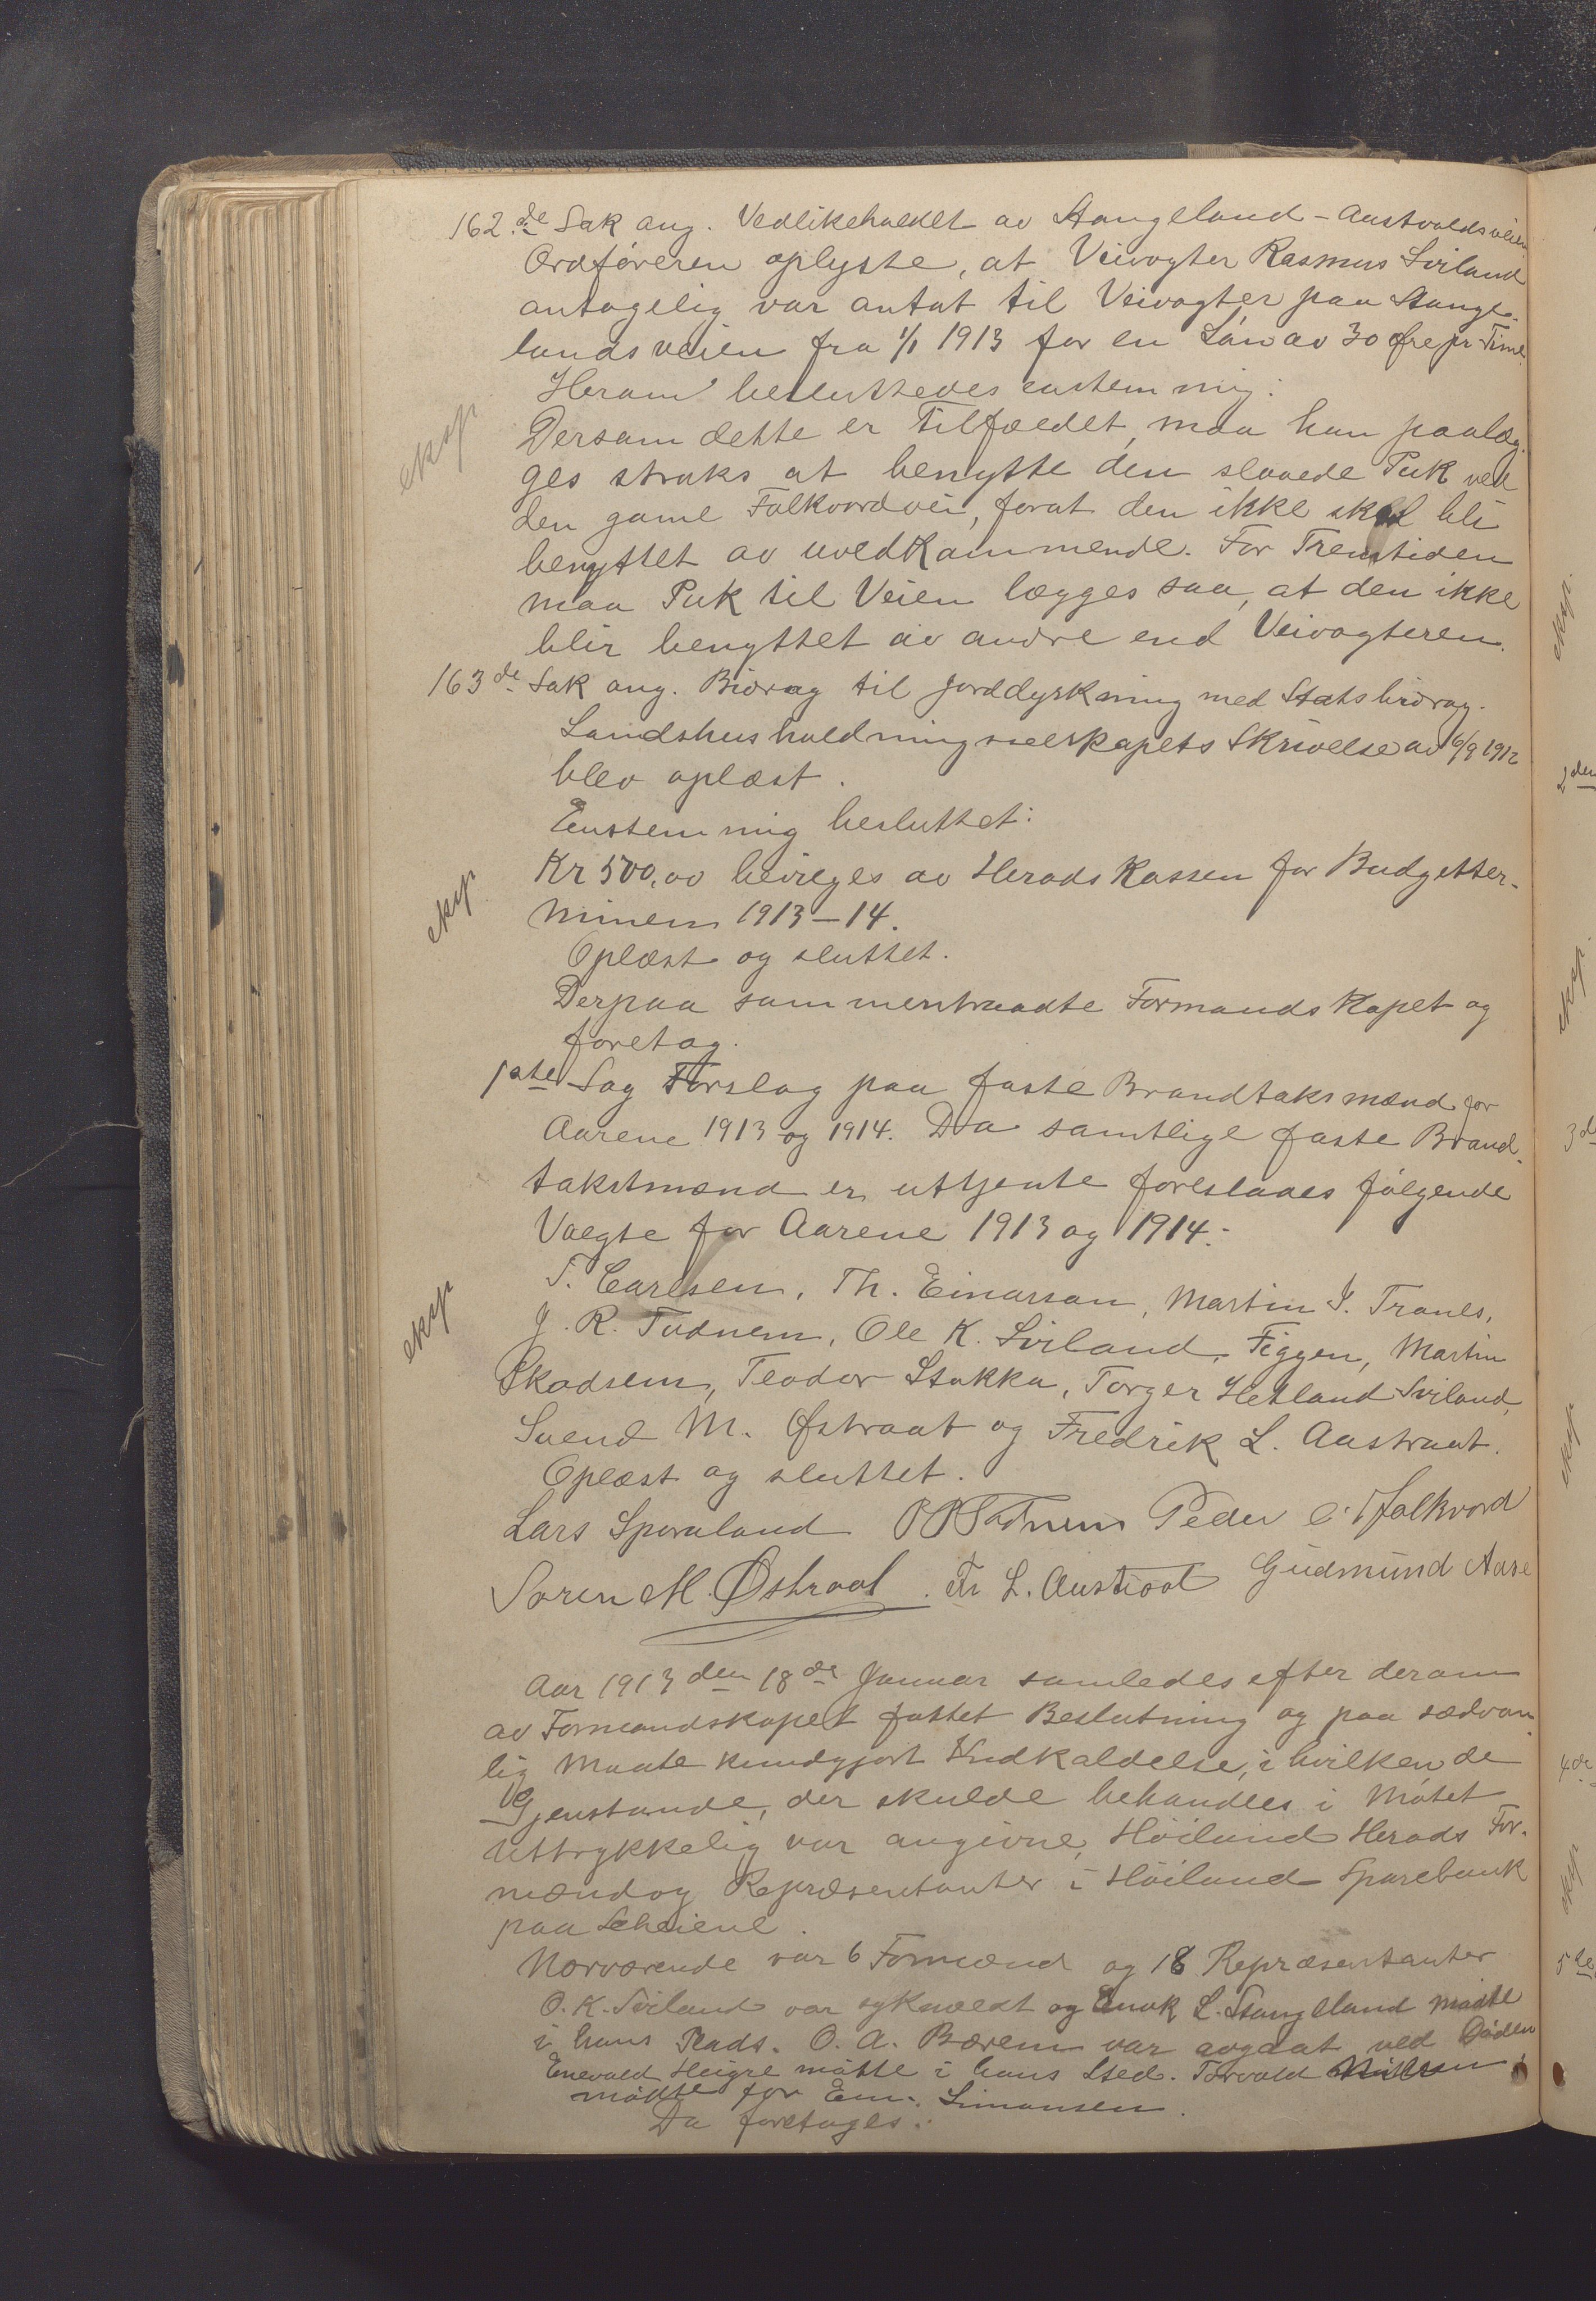 162.de Sak ang. Vedlikeholdet av Stangeland-Austvoldsveien
Ordføreren oplyste, at Veivogter Rasmus Sviland
antagelig var antat til Veivogter paa Stange-
landsveien fra 1/1 1913 for en Løn av 30 Øre pr Time.
Herom besluttedes enstemmig:
eksp
Dersom dette er Tilfældet, maa han paalæg-
ges straks at benytte den slaaede Puk ved
den gamle Folkvordvei, forat den ikke skal bli
benyttet av uvedkommende. For Fremtiden
maa Puk til Veien lægges saa, at den ikke
blir benyttet av andre end Veivogteren.
163de Sak ang. Bidrag til Jorddyrkning med Statsbidrag.
Landhusholdningsselskapets Skrivelse av 16/9 1912
blev oplæst.
Enstemmig besluttet:
eksp.
Kr 500,00 bevilges av Heradskassen for Budgetter-
minen 1913-14.
Oplæst og sluttet.
Derpaa sammentraadte Formandskapet og
foretog.
1ste Sag Forslag paa faste Brandtaksmænd for
Aarene 1913 og 1914. Da samtlige faste Brand-
takstmænd er uttjente foreslaaes følgende
Valgte for Aarene 1913 og 1914:
eksp
T. Carlsen, Th. Einarsen, Martin I. Tranes,
J. R. Tudnem, Ole K. Sviland, Figgen, Martin
Skadsem, Teodor Stokka, Torger Hetland Sviland,
Svend M. Østraat og Fredrik L. Austraat.
Oplæst og sluttet.
Lars Sporaland Peder C. Folkvord
Søren M. Østraat. Fr L. Austraat Gudmund Aase
Aar 1913 den 18de Januar samledes efter derom
av Formandskapet fattet Beslutning og paa sædvan-
lig Maate kundgjort Indkaldelse, i hvilken de
Gjenstande, der skulde behandles i Møtet
uttrykkelig var angivne, Høiland Herads For-
mænd og Repræsentanter i Høiland Sparebank
paa Scheiene.
Nærværende var 6 Formænd og 18 Repræsentanter
O. K. Sviland var sykmeldt og Enok L. Stangeland møtte
i hans Plads. O. A. Bærem var avgaat ved Døden
Enevald Høigre møtte i hans Sted. Torvald Nilssen
møtte for Em. Simonsen.
Da foretoges: